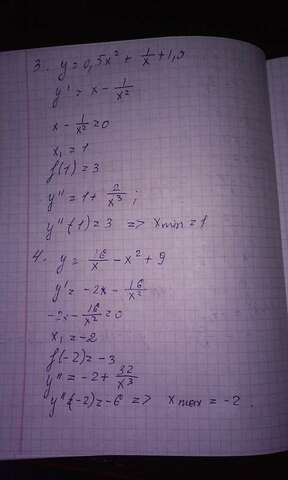 3. y = 0,5x² + 1/x + 1,0
y' = x - 1/x²
x - 1/x² = 0
x₁ = 1
f(1) = 3
y'' = 1 + 2/x³ ;
y''(1) = 3 => xmin = 1
4. y = 16/x - x² + 9
y' = -2x - 16/x²
-2x - 16/x² = 0
x₁ = -2
f(-2) = -3
y'' = -2 + 32/x³
y''(-2) = -6 => xmax = -2 .